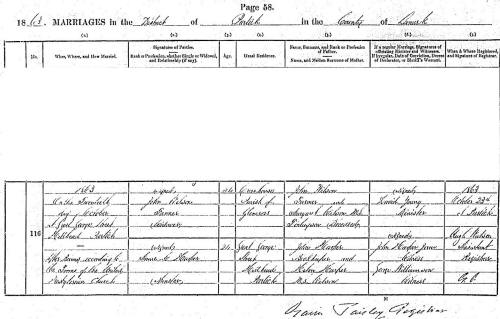 Page 58.
1863. MARRIAGES in the District of Partick in the County of Lanark
No.
When, Where, and How Married.
Signatures of Parties.
Rank or Profession, whether Single or Widowed, and Relationship (if any).
Age.
Usual Residence.
Name, Surname, and Rank or Profession of Father.
Name, and Maiden Surname of Mother.
If a regular Marriage, Signatures of officiating Minister and Witnesses.
If irregular, Date of Conviction, Decree of Declarator, or Sheriff's Warrant.
When & Where Registered, and Signature of Registrar.
116
1863
On the Twentieth
day October
George Street
Hillhead Partick
After Banns according to
the Forms of the United
Presbyterian Church
(signed)
John Wilson
Farmer
(signed)
Harper
Parish of
George
Street
Hillhead
Partick
John Wilson
Farmer and
Margaret Wilson M.S.
(Deceased)
John Harper
Bookkeeper and
Helen Harper
M.S. Watson
(signed)
David Young
Minister
(signed)
John Harper Junr
Witness
George Williamson
Witness
1863
October 22d
At Partick
Hugh Watson
Assistant
Registrar
Gavin Paisley Registrar